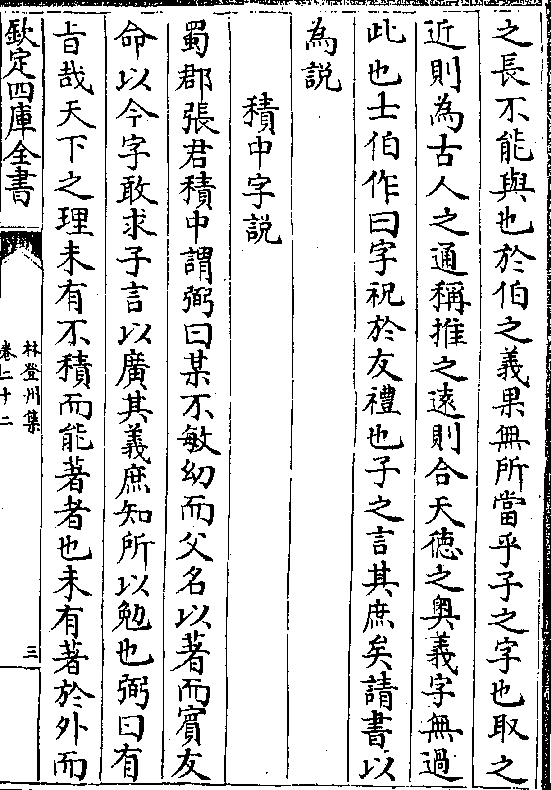 之長不能與也於伯之義果無所當乎子之字也取之
近則為古人之通稱推之遠則合天徳之奥義字無過
此也士伯作曰字祝於友禮也子之言其庶矣請書以
為説
積中字説
蜀郡張君積中謂弼曰某不敏幼而父名以著而賓友
命以今字敢求子言以廣其義庶知所以勉也弼曰有
㫖哉天下之理未有不積而能著者也未有著於外而
欽定四庫全書
林登州集
卷二十二
三